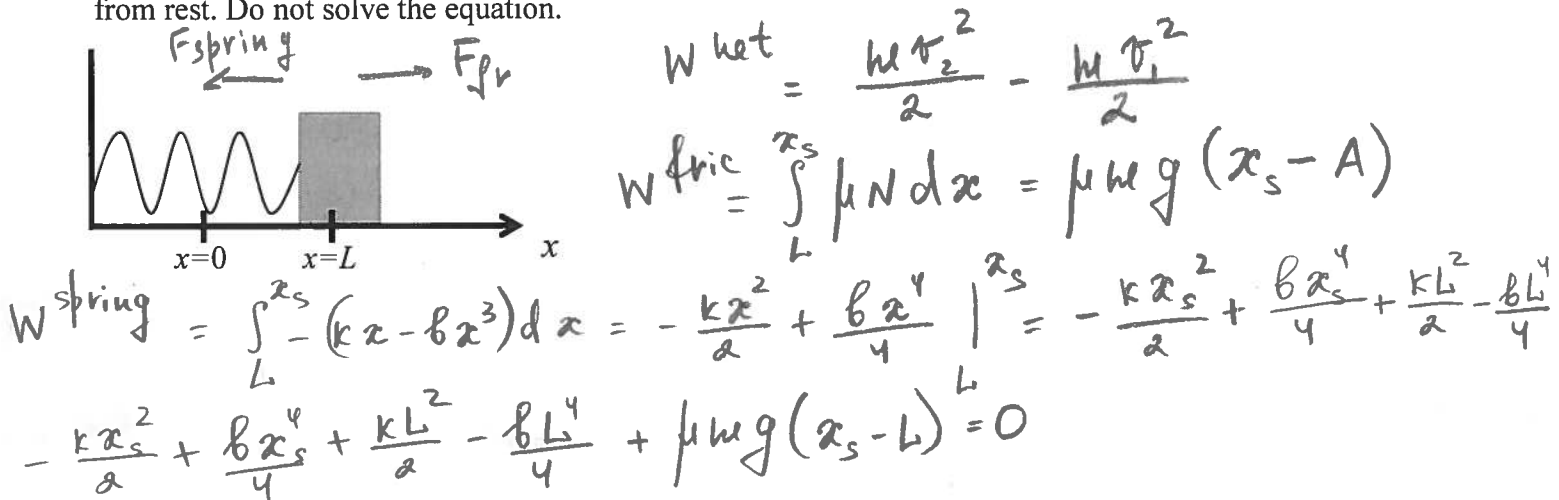 from rest. Do not solve the equation.
Fspring Ffr
x=0 x=L x
W^net = mv₂²/2 - mv₁²/2
W^fric = ∫_L^{x_s} μN dx = μmg(x_s - A)
W^spring = ∫_L^{x_s} -(kx - bx³)dx = - kx²/2 + bx⁴/4 |_L^{x_s} = - kx_s²/2 + bx_s⁴/4 + kL²/2 - bL⁴/4
- kx_s²/2 + bx_s⁴/4 + kL²/2 - bL⁴/4 + μmg(x_s - L) = 0